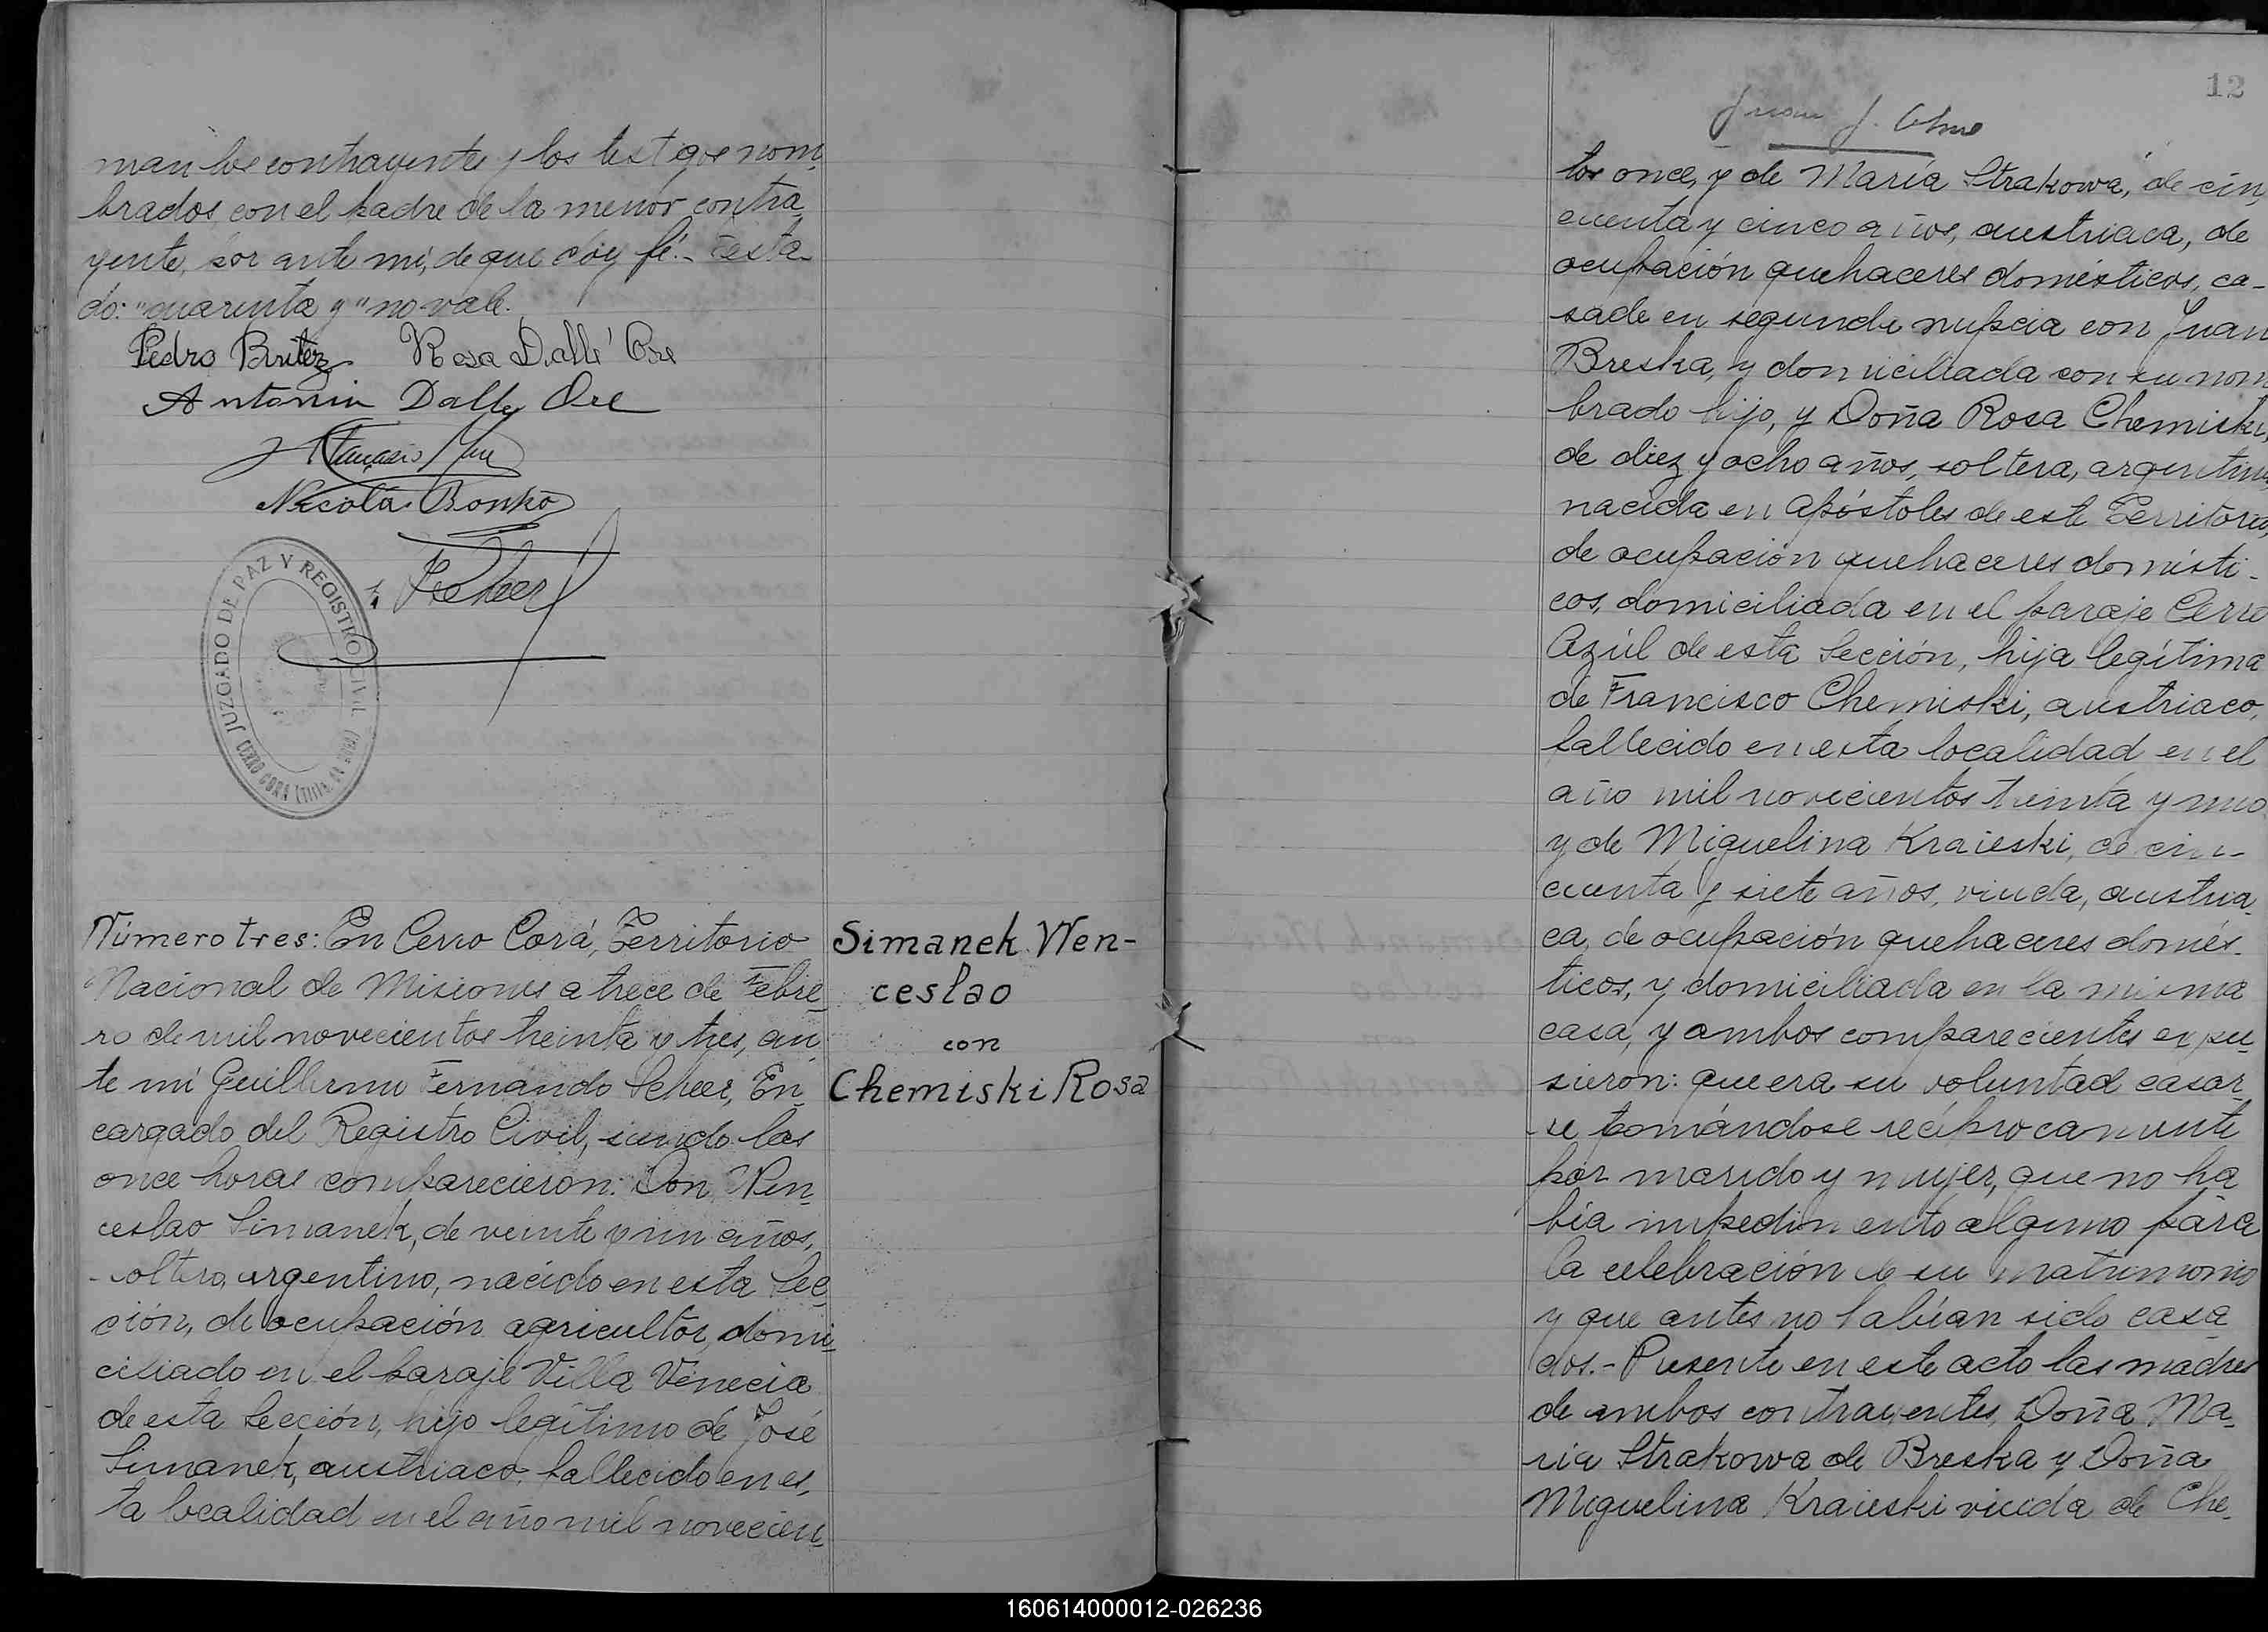 man los contrayentes y los testigos nom-
brados, con el padre de la menor contra-
yente, por ante mí, de que doy fé.- Testa-
do: "cuarenta y" no vale.
Pedro Britez Rosa Dalle' Ore
Antonio Dalle Ore
Nicolas Bonko
F. Scheer
JUZGADO DE PAZ Y REGISTRO CIVIL
CERRO CORA
Número tres: En Cerro Corá, Territorio
Nacional de Misiones a trece de Febre-
ro de mil novecientos treinta y tres, an-
te mí Guillermo Fernando Scheer, En-
cargado del Registro Civil, siendo las
once horas comparecieron: Don Wen-
ceslao Simanek, de veinte y un años,
soltero, argentino, nacido en esta Sec-
ción, de ocupación agricultor, domi-
ciliado en el paraje Villa Venecia
de esta Sección, hijo legítimo de José
Simanek, austriaco, fallecido en es-
ta localidad en el año mil novecien-
Simanek Wen-
ceslao
con
Chemiski Rosa
12
Juan J.
tos once, y de María Strakowa, de cin-
cuenta y cinco años, austriaca, de
ocupación quehaceres domésticos, ca-
sade en segunda nupcia con Juan
Breska, y domiciliada con su nom
brado hijo, y Doña Rosa Chemiski,
de diez y ocho años, soltera, argentina
nacida en Apóstoles de este Territorio,
de ocupación quehaceres domésti-
cos, domiciliada en el paraje Cerro
Azúl de esta Sección, hija legítima
de Francisco Chemiski, austriaco,
fallecido en esta localidad en el
año mil novecientos treinta y uno
y de Miguelina Kraieski, de cin-
cuenta y siete años, viuda, austria-
ca, de ocupación quehaceres domés-
ticos, y domiciliada en la misma
casa, y ambos comparecientes expu-
sieron: que era su voluntad casar-
se tomándose recíprocamente
por marido y mujer, que no ha
bía impedimento alguno para
la celebración de su matrimonio
y que antes no habían sido casa-
dos.- Presente en este acto las madres
de ambos contrayentes, Doña Ma-
ria Strakowa de Breska y Doña
Miguelina Kraieski viuda de Che-
160614000012-026236